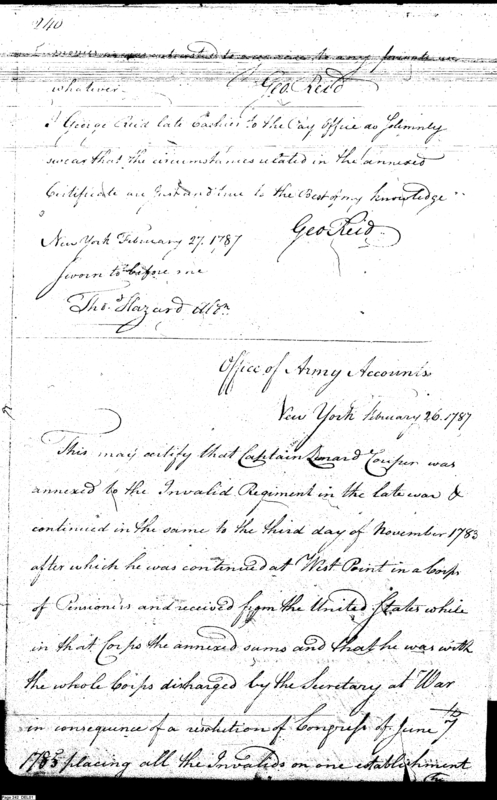 240
whatever Geo. Reid
I George Reid late Cashier to the Pay Office do Solemnly
swear that the circumstances related in the annexed
Certificate are Just and true to the Best of my knowledge
New York February 27. 1787 Geo Reid
Sworn to before me
Thos. Hazard Aldn.
Office of Army Accounts
New York February 26. 1787
This may certify that Captain Leonard Couper was
annexed to the Invalid Regiment in the late war &
continued in the same to the third day of November 1783
after which he was continued at West Point in a Corps
of Pensioners and received from the United States while
in that Corps the annexed sums and that he was with
the whole Corps discharged by the Secretary at War
in consequence of a resolution of Congress of June 7th
1785 placing all the Invalids on one establishment